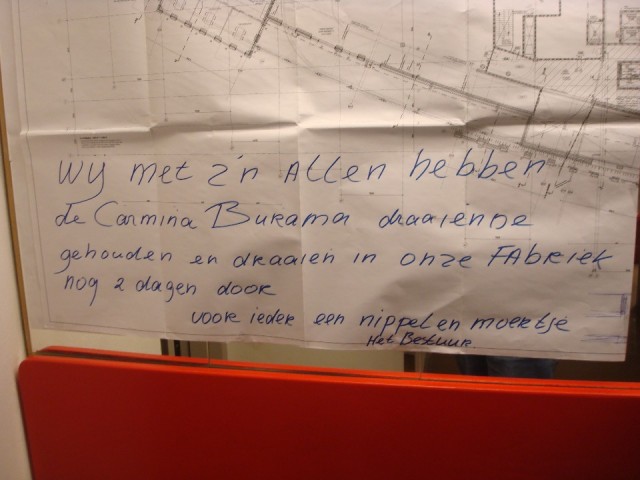 Wij met z'n Allen hebben
de Carmina Burama draaiende
gehouden en draaien in onze FAbriek
nog 2 dagen door
voor ieder een nippel en moertje
Het Bestuur